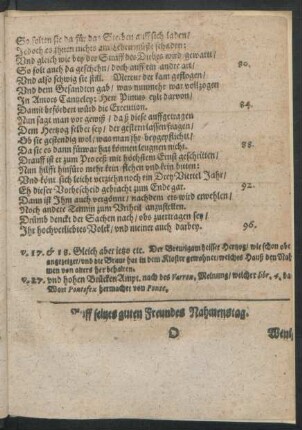 So solten sie da für das Sterben auff sich laden/
Jedoch es ihnen nichts am
Und gleich wie bey der Straff des Diebes wird gewatt/
So solt auch da geschehn/ doch auff ein ander art/ 80.
Und also schwig sie still. Metius der kam geflogen/
Und dem Gesandten gab/ was nunmehr war vollzogen
In Amors Cantzeley: Herr Pinus eylt darvon/
Damit befördert würd die Execution. 84.
Nun sagt man vor gewiß/ daß diese auffgetragen
Dem Hertzog selber sey/ der gestern lassen fragen/
Ob sie geständig wol/ was man ihr beygepflicht/
Da sie es dann fürwar hat können leugnen nicht. 88.
Drauff ist er zum Proceß mit höchstem Ernst geschritten/
Nun hilfft hinfüro mehr kein flehen und kein bitten:
Und könt sich leicht verziehn noch ein Drey Viertel Jahr/
Eh dieser Vorbescheid gebracht zum Ende gar. 92.
Dann ist Ihm auch vergönnt/ nachdem ers wird erwehlen/
Noch andre Termin zum Urtheil anzustellen.
Drümb denckt der Sachen nach/ obs zuertragen sey/
Ihr hochverliebtes Volck/ und meiner auch darbey. 96.
v. 17. & 18. Gleich aber jetzo etc. Der Bräutigam heisset Hertzog/ wie schon obe
angezeiget/ und die Braut hat in dem Kloster gewohnet/ welches Hauß den Nah
men von alters her behalten.
v. 27. und hohen Brücken Ampt. nach des Varron, Meinung/ welcher
Wort Pontifex hernachet von Ponte.
Auff seines guten Freundes Nahmenstag.
O